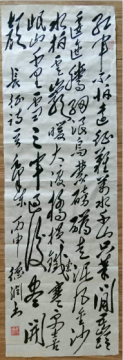 红军不怕远征难万水千山只等闲五岭
逶迤腾细浪乌蒙磅礴走泥丸金沙
水拍云崖暖大渡桥横铁索寒更喜
岷山千里雪三军过后尽开
颜 长征诗一首 丙申